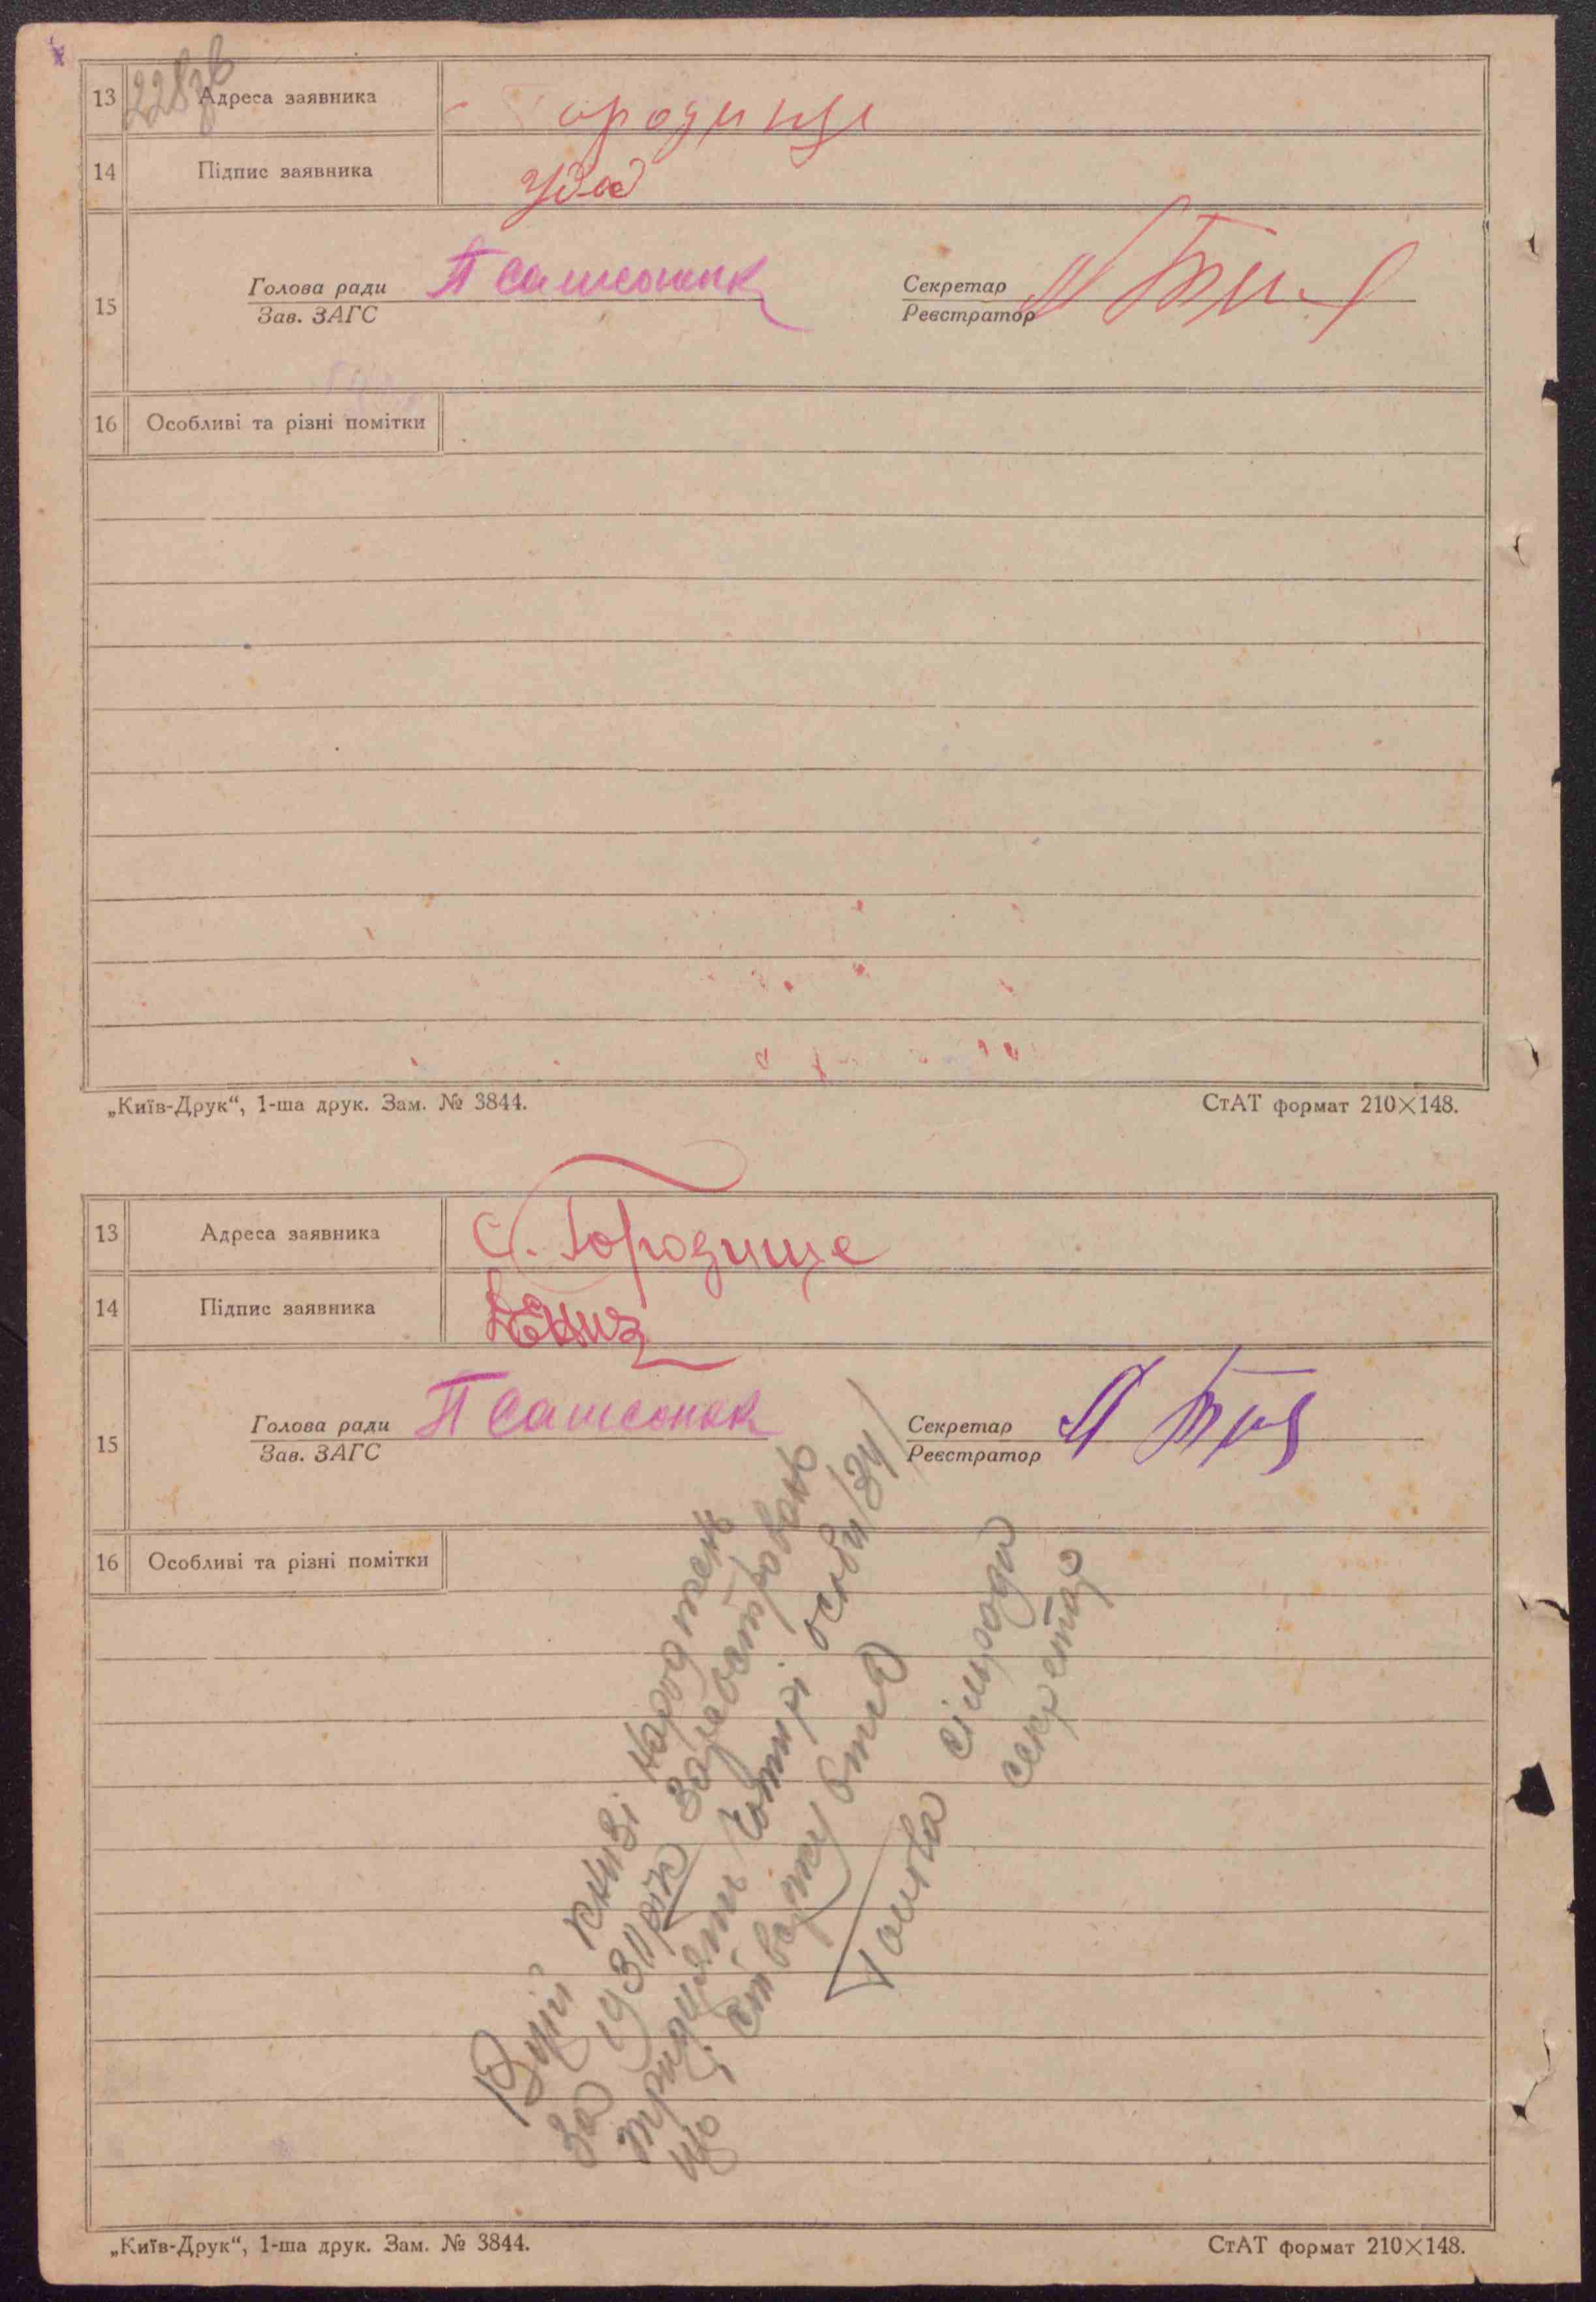 228зв
13 Адреса заявника ородище
14 Підпис заявника
15 Голова ради П Самсонюк Секретар
Зав. ЗАГС Реєстратор
16 Особливі та різні помітки
„Київ-Друк“, 1-ша друк. Зам. № 3844. СтАТ формат 210×148.
13 Адреса заявника С. Городище
14 Підпис заявника
15 Голова ради П Самсонюк Секретар
Зав. ЗАГС Реєстратор
16 Особливі та різні помітки
В цій книзі народжень
за 1931 рік зареєстровань
тридцять чотирі особи /34/
що і стверджу
Голова сільради
секретар
„Київ-Друк“, 1-ша друк. Зам. № 3844. СтАТ формат 210×148.